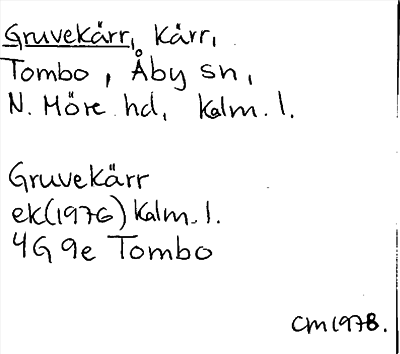 Gruvekärr, kärr,
Tombo, Åby sn,
N. Möre hd, Kalm. l.
Gruvekärr
ek(1976) Kalm. l.
4G 9e Tombo
CM 1978.